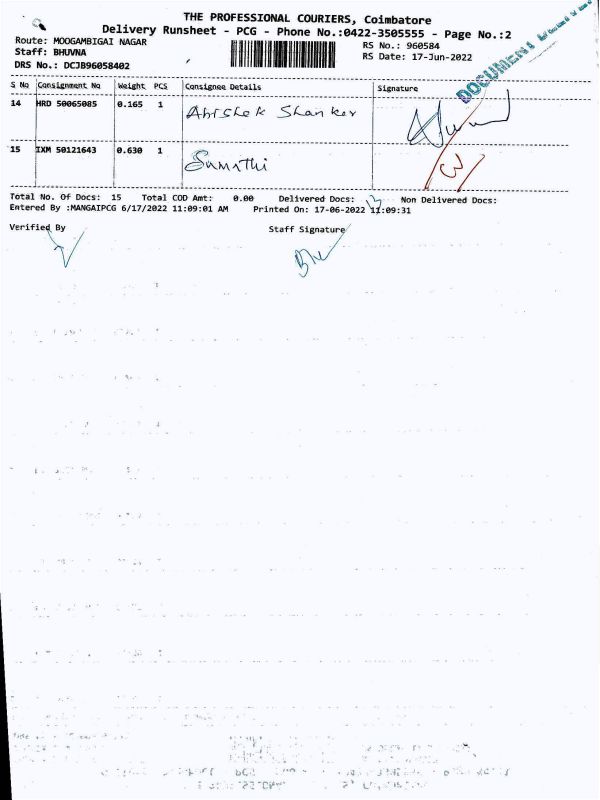 THE PROFESSIONAL COURIERS, Coimbatore
Delivery Runsheet - PCG - Phone No.:0422-3505555 - Page No.:2
Route: MOOGAMBIGAI NAGAR
Staff: BHUVNA
DRS No.: DCJB96058402
RS No.: 960584
RS Date: 17-Jun-2022
DOCUMENT
S No Consignment No Weight PCS Consignee Details Signature
14 HRD 50065085 0.165 1 Abishek Shanker
15 IXM 50121643 0.630 1 Sumathi
Total No. Of Docs: 15 Total COD Amt: 0.00 Delivered Docs: 13 Non Delivered Docs:
Entered By :MANGAIPCG 6/17/2022 11:09:01 AM Printed On: 17-06-2022 11:09:31
Verified By Staff Signature